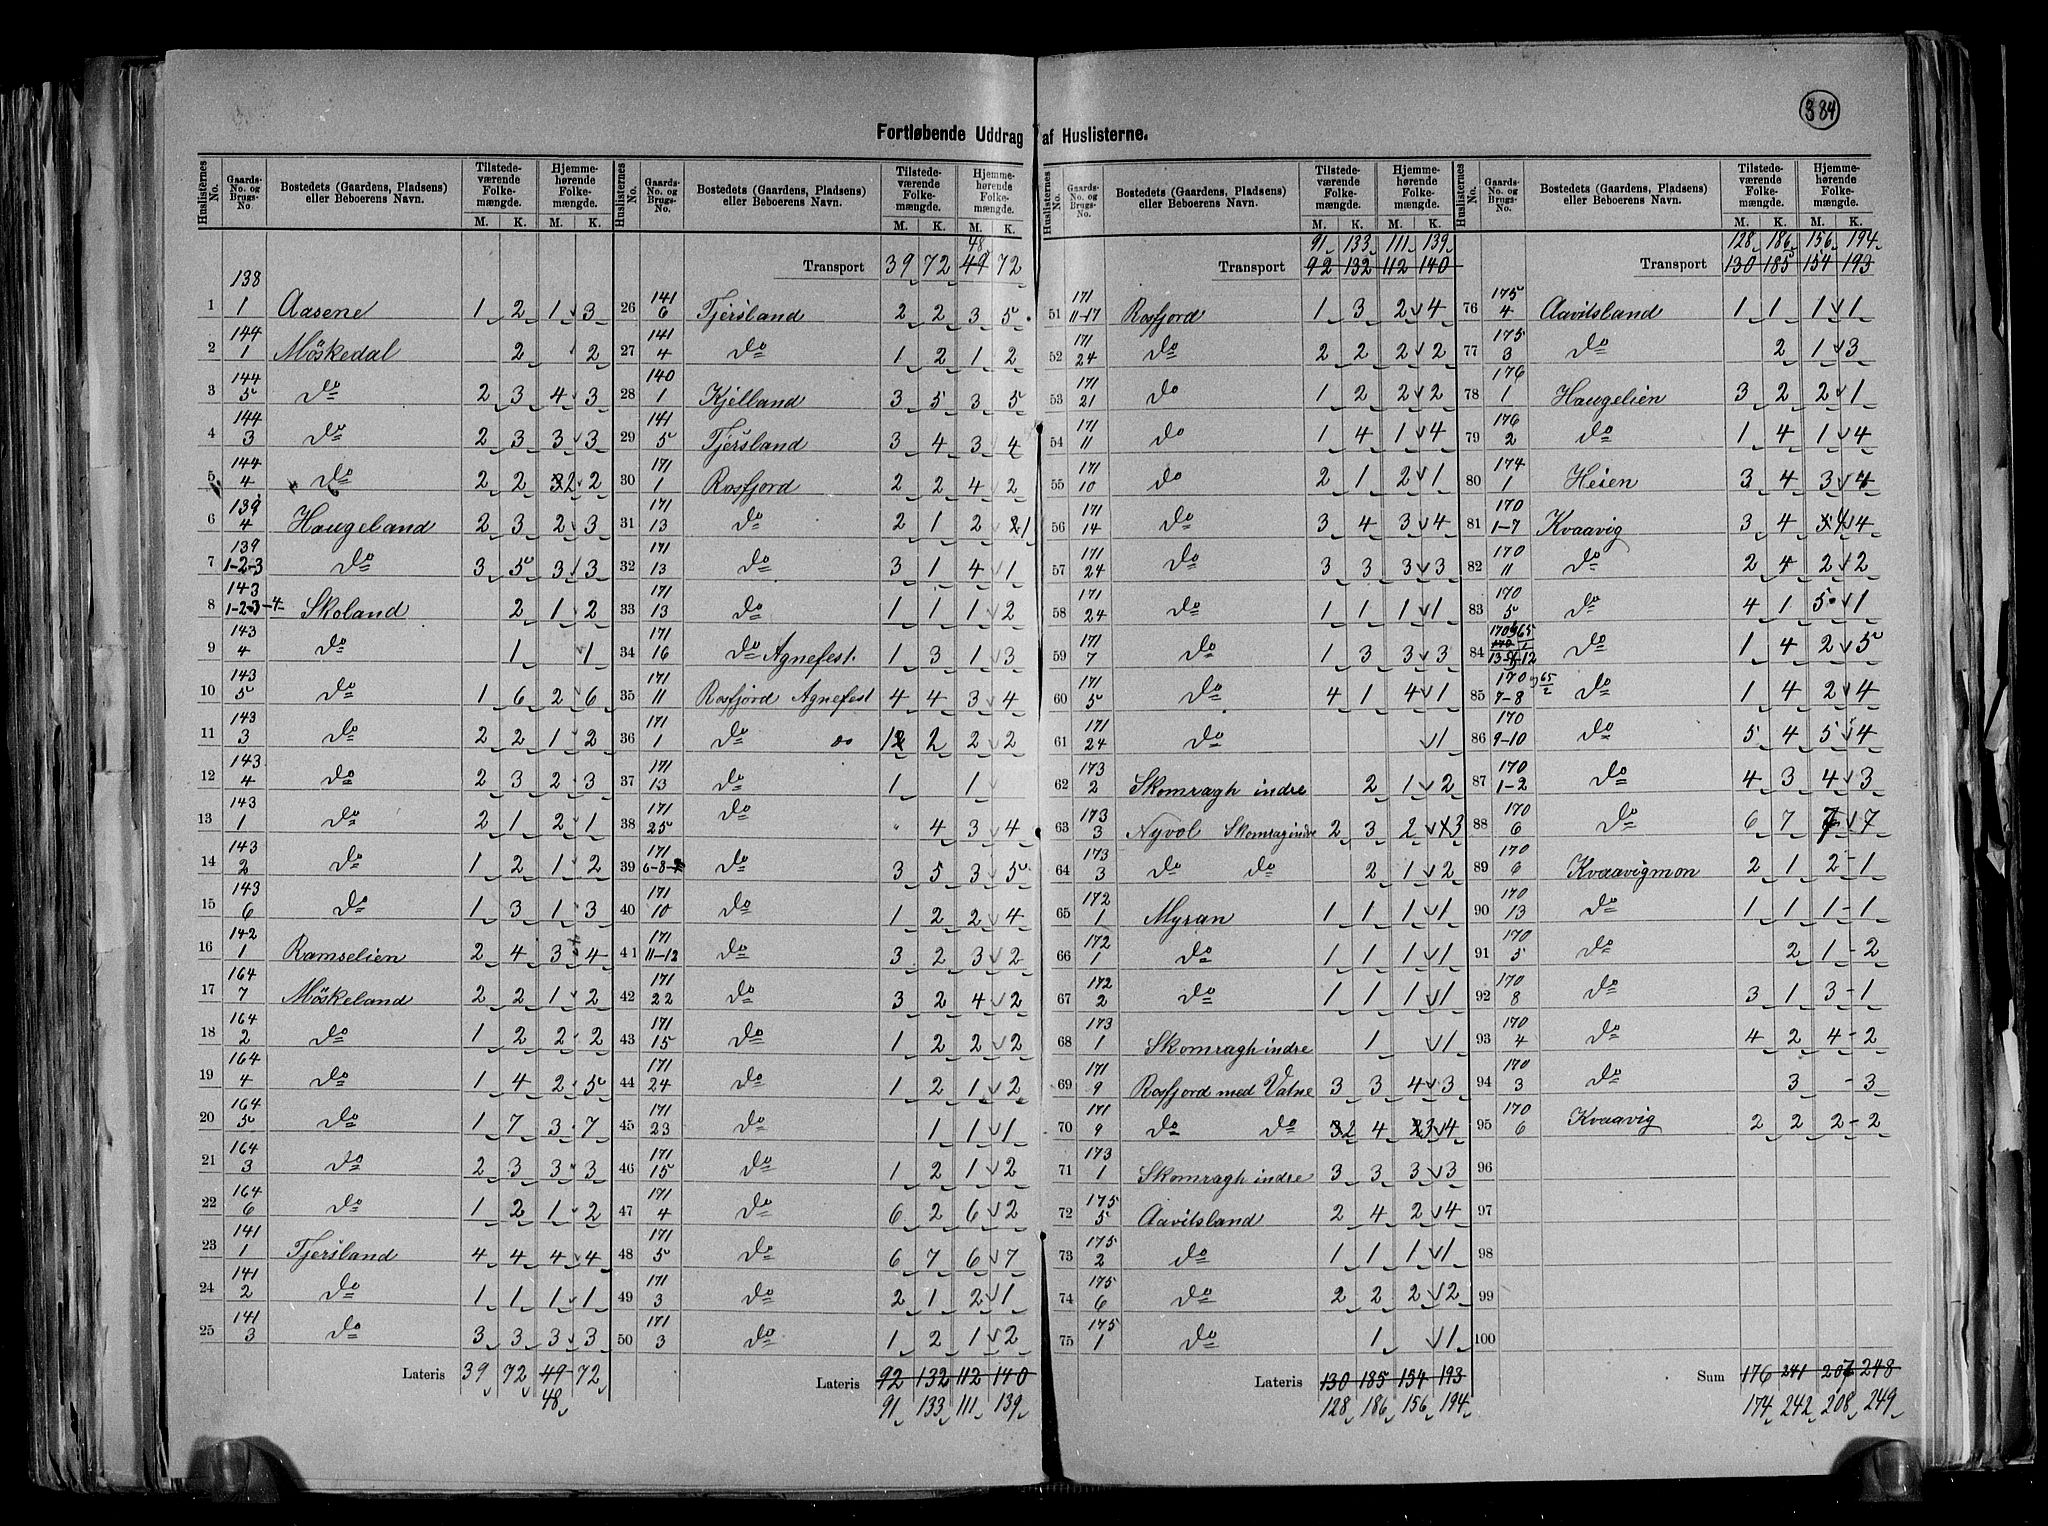 384
Fortløbende Uddrag af Huslisterne.
Huslisternes No. | Gaards-No. og Brugs-No. | Bostedets (Gaardens, Pladsens) eller Beboerens Navn. | Tilstedeværende Folkemængde. M. K. | Hjemmehørende Folkemængde. M. K.
1 138/1 Aasene 1 2 1 3
2 144/1 Möskedal 2 2
3 144/5 do 2 3 4 3
4 144/3 do 2 3 3 3
5 144/4 do 2 2 2 2
6 139/4 Haugeland 2 3 2 3
7 139/1-2-3 do 3 5 3 3
8 143/1-2-3-4 Skoland 2 1 2
9 143/4 do 1 1
10 143/5 do 1 6 2 6
11 143/3 do 2 2 1 2
12 143/4 do 2 3 2 3
13 143/1 do 2 1 2 1
14 143/2 do 1 2 1 2
15 143/6 do 1 3 1 3
16 142/1 Ramselien 2 4 3 4
17 164/7 Möskeland 2 2 1 2
18 164/2 do 1 2 2 2
19 164/4 do 1 4 2 5
20 164/5 do 1 7 3 7
21 164/3 do 2 3 3 3
22 164/6 do 1 2 1 2
23 141/1 Tjersland 4 4 4 4
24 141/2 do 1 1 1 1
25 141/3 do 3 3 3 3
Lateris 39 72 49 72
48
Huslisternes No. | Gaards-No. og Brugs-No. | Bostedets (Gaardens, Pladsens) eller Beboerens Navn. | Tilstedeværende Folkemængde. M. K. | Hjemmehørende Folkemængde. M. K.
48
Transport 39 72 49 72
26 141/6 Tjersland 2 2 3 5
27 141/4 do 1 2 1 2
28 140/1 Kjelland 3 5 3 5
29 141/5 Tjersland 3 4 3 4
30 171/1 Rosfjord 2 2 4 2
31 171/13 do 2 1 2 1
32 171/13 do 3 1 4 1
33 171/13 do 1 1 1 2
34 171/16 do Agnefest. 1 3 1 3
35 171/11 Rosfjord Agnefest 4 4 3 4
36 171/1 do do 1 2 2 2
37 171/13 do 1 1
38 171/25 do " 4 3 4
39 171/6-8- do 3 5 3 5
40 171/10 do 1 2 2 4
41 171/11-12 do 3 2 3 2
42 171/22 do 3 2 4 2
43 171/15 do 1 2 2 2
44 171/24 do 1 2 1 2
45 171/23 do 1 1 1
46 171/15 do 1 2 1 2
47 171/4 do 6 2 6 2
48 171/5 do 6 7 6 7
49 171/3 do 2 1 2 1
50 171/3 do 1 2 1 2
Lateris 92 132 112 140
91 133 111 139
Huslisternes No. | Gaards-No. og Brugs-No. | Bostedets (Gaardens, Pladsens) eller Beboerens Navn. | Tilstedeværende Folkemængde. M. K. | Hjemmehørende Folkemængde. M. K.
91 133 111 139
Transport 92 132 112 140
51 171/11-17 Rosfjord 1 3 2 4
52 171/24 do 2 2 2 2
53 171/21 do 1 2 2 2
54 171/11 do 1 4 1 4
55 171/10 do 2 1 2 1
56 171/14 do 3 4 3 4
57 171/24 do 3 3 3 3
58 171/24 do 1 1 1 1
59 171/7 do 1 3 3 3
60 171/5 do 4 1 4 1
61 171/24 do 1
62 173/2 Skomragh indre 2 1 2
63 173/3 Nyvol Skomragindre 2 3 2 3
64 173/3 do do 2 1 2
65 172/1 Myran 1 1 1 1
66 172/1 do 1 1 1 1
67 172/2 do 1 1 1 1
68 173/1 Skomragh indre 1 1
69 171/9 Rosfjord med Vatne 3 3 4 3
70 171/9 do do 2 4 3 4
71 173/1 Skomragh indre 3 3 3 3
72 175/5 Aavitsland 2 4 2 4
73 175/2 do 1 1 1 1
74 175/6 do 2 2 2 2
75 175/1 do 1 1
Lateris 130 185 154 193
128 186 156 194
Huslisternes No. | Gaards-No. og Brugs-No. | Bostedets (Gaardens, Pladsens) eller Beboerens Navn. | Tilstedeværende Folkemængde. M. K. | Hjemmehørende Folkemængde. M. K.
128 186 156 194
Transport 130 185 154 193
76 175/4 Aavitsland 1 1 1 1
77 175/3 do 2 1 3
78 176/1 Haugelien 3 2 2 1
79 176/2 do 1 4 1 4
80 174/1 Heien 3 4 3 4
81 170/1-7 Kvaavig 3 4 4 4
82 170/11 do 2 4 2 2
83 170/5 do 4 1 5 1
84 do 1 4 2 5
85 170/7-8 65/2 do 1 4 2 4
86 170/9-10 do 5 4 5 4
87 170/1-2 do 4 3 4 3
88 170/6 do 6 7 7 7
89 170/6 Kvaavigmon 2 1 2 - 1
90 170/13 do 1 1 1 - 1
91 170/5 do 2 1 - 2
92 170/8 do 3 1 3 - 1
93 170/4 do 4 2 4 - 2
94 170/3 do 3 - 3
95 170/6 Kvaavig 2 2 2 - 2
96
97
98
99
100
Sum 176 241 207 248
174 242 208 249